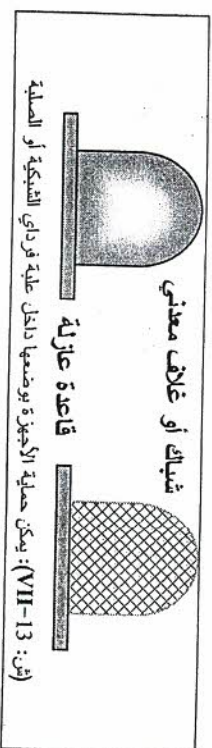 شباك أو غلاف معدني
قاعدة عازلة
(ش: VII-13): يمكن حماية الأجهزة بوضعها داخل علبة فرداي الشبكية أو الصلبة